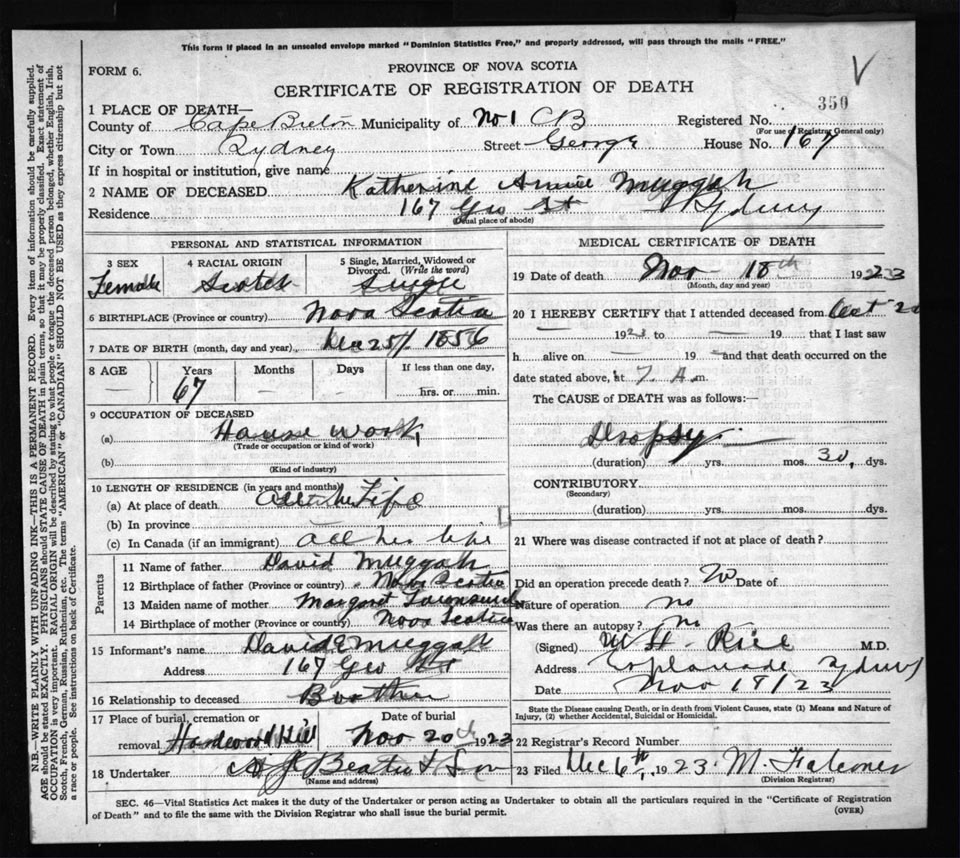 This form if placed in an unsealed envelope marked "Dominion Statistics Free," and properly addressed, will pass through the mails "FREE."
FORM 6.
PROVINCE OF NOVA SCOTIA
CERTIFICATE OF REGISTRATION OF DEATH
350
1 PLACE OF DEATH—
County of Cape Breton Municipality of No 1 CB Registered No.
(For use of Registrar General only)
City or Town Sydney Street George House No. 167
If in hospital or institution, give name
2 NAME OF DECEASED Katherine Annie Muggah
Residence 167 Geo St Sydney
(Usual place of abode)
PERSONAL AND STATISTICAL INFORMATION
3 SEX 4 RACIAL ORIGIN 5 Single, Married, Widowed or Divorced. (Write the word)
Female Scotch Single
6 BIRTHPLACE (Province or country) Nova Scotia
7 DATE OF BIRTH (month, day and year) Dec 25/ 1856
8 AGE Years Months Days If less than one day,
67 — — hrs. or min.
9 OCCUPATION OF DECEASED
(a) House work
(Trade or occupation or kind of work)
(b)
(Kind of industry)
10 LENGTH OF RESIDENCE (in years and months)
(a) At place of death Life
(b) In province
(c) In Canada (if an immigrant) all her life
Parents
11 Name of father David Muggah
12 Birthplace of father (Province or country) Nova Scotia
13 Maiden name of mother Margaret Townsend
14 Birthplace of mother (Province or country) Nova Scotia
15 Informant's name David E Muggah
Address 167 Geo St
16 Relationship to deceased Brother
17 Place of burial, cremation or removal Hardwood Hill
Date of burial Nov 20th 1923
18 Undertaker Beaton & Son
(Name and address)
MEDICAL CERTIFICATE OF DEATH
19 Date of death Nov 18th 1923
(Month, day and year)
20 I HEREBY CERTIFY that I attended deceased from Oct 20
1923 to — 19 that I last saw
h alive on — 19 — and that death occurred on
date stated above, at 7. A. m.
The CAUSE of DEATH was as follows:—
Dropsy
(duration) yrs. mos. 30, dys.
CONTRIBUTORY
(Secondary)
(duration) yrs. mos. dys.
21 Where was disease contracted if not at place of death?
Did an operation precede death? No Date of
Nature of operation no
Was there an autopsy? No
(Signed) Rice M.D.
Address Esplanade Sydney
Date Nov 19/23
State the Disease causing Death, or in death from Violent Causes, state (1) Means and Nature of Injury, (2) whether Accidental, Suicidal or Homicidal.
22 Registrar's Record Number
23 Filed Dec 6th, 1923. M. Falconer
(Division Registrar)
SEC. 46—Vital Statistics Act makes it the duty of the Undertaker or person acting as Undertaker to obtain all the particulars required in the "Certificate of Registration
of Death" and to file the same with the Division Registrar who shall issue the burial permit. (OVER)
N.B.—WRITE PLAINLY WITH UNFADING INK—THIS IS A PERMANENT RECORD. Every item of information should be carefully supplied.
AGE should be stated EXACTLY. PHYSICIANS should STATE CAUSE OF DEATH in plain terms, so that it may be properly classified. Exact statement of
OCCUPATION is very important. RACIAL ORIGIN will be described by stating to what people or tongue the deceased person belonged, whether English, Irish,
Scotch, French, German, Russian, Ruthenian, etc. The terms "AMERICAN" or "CANADIAN" SHOULD NOT BE USED as they express citizenship but not
a race or people. See instructions on back of Certificate.